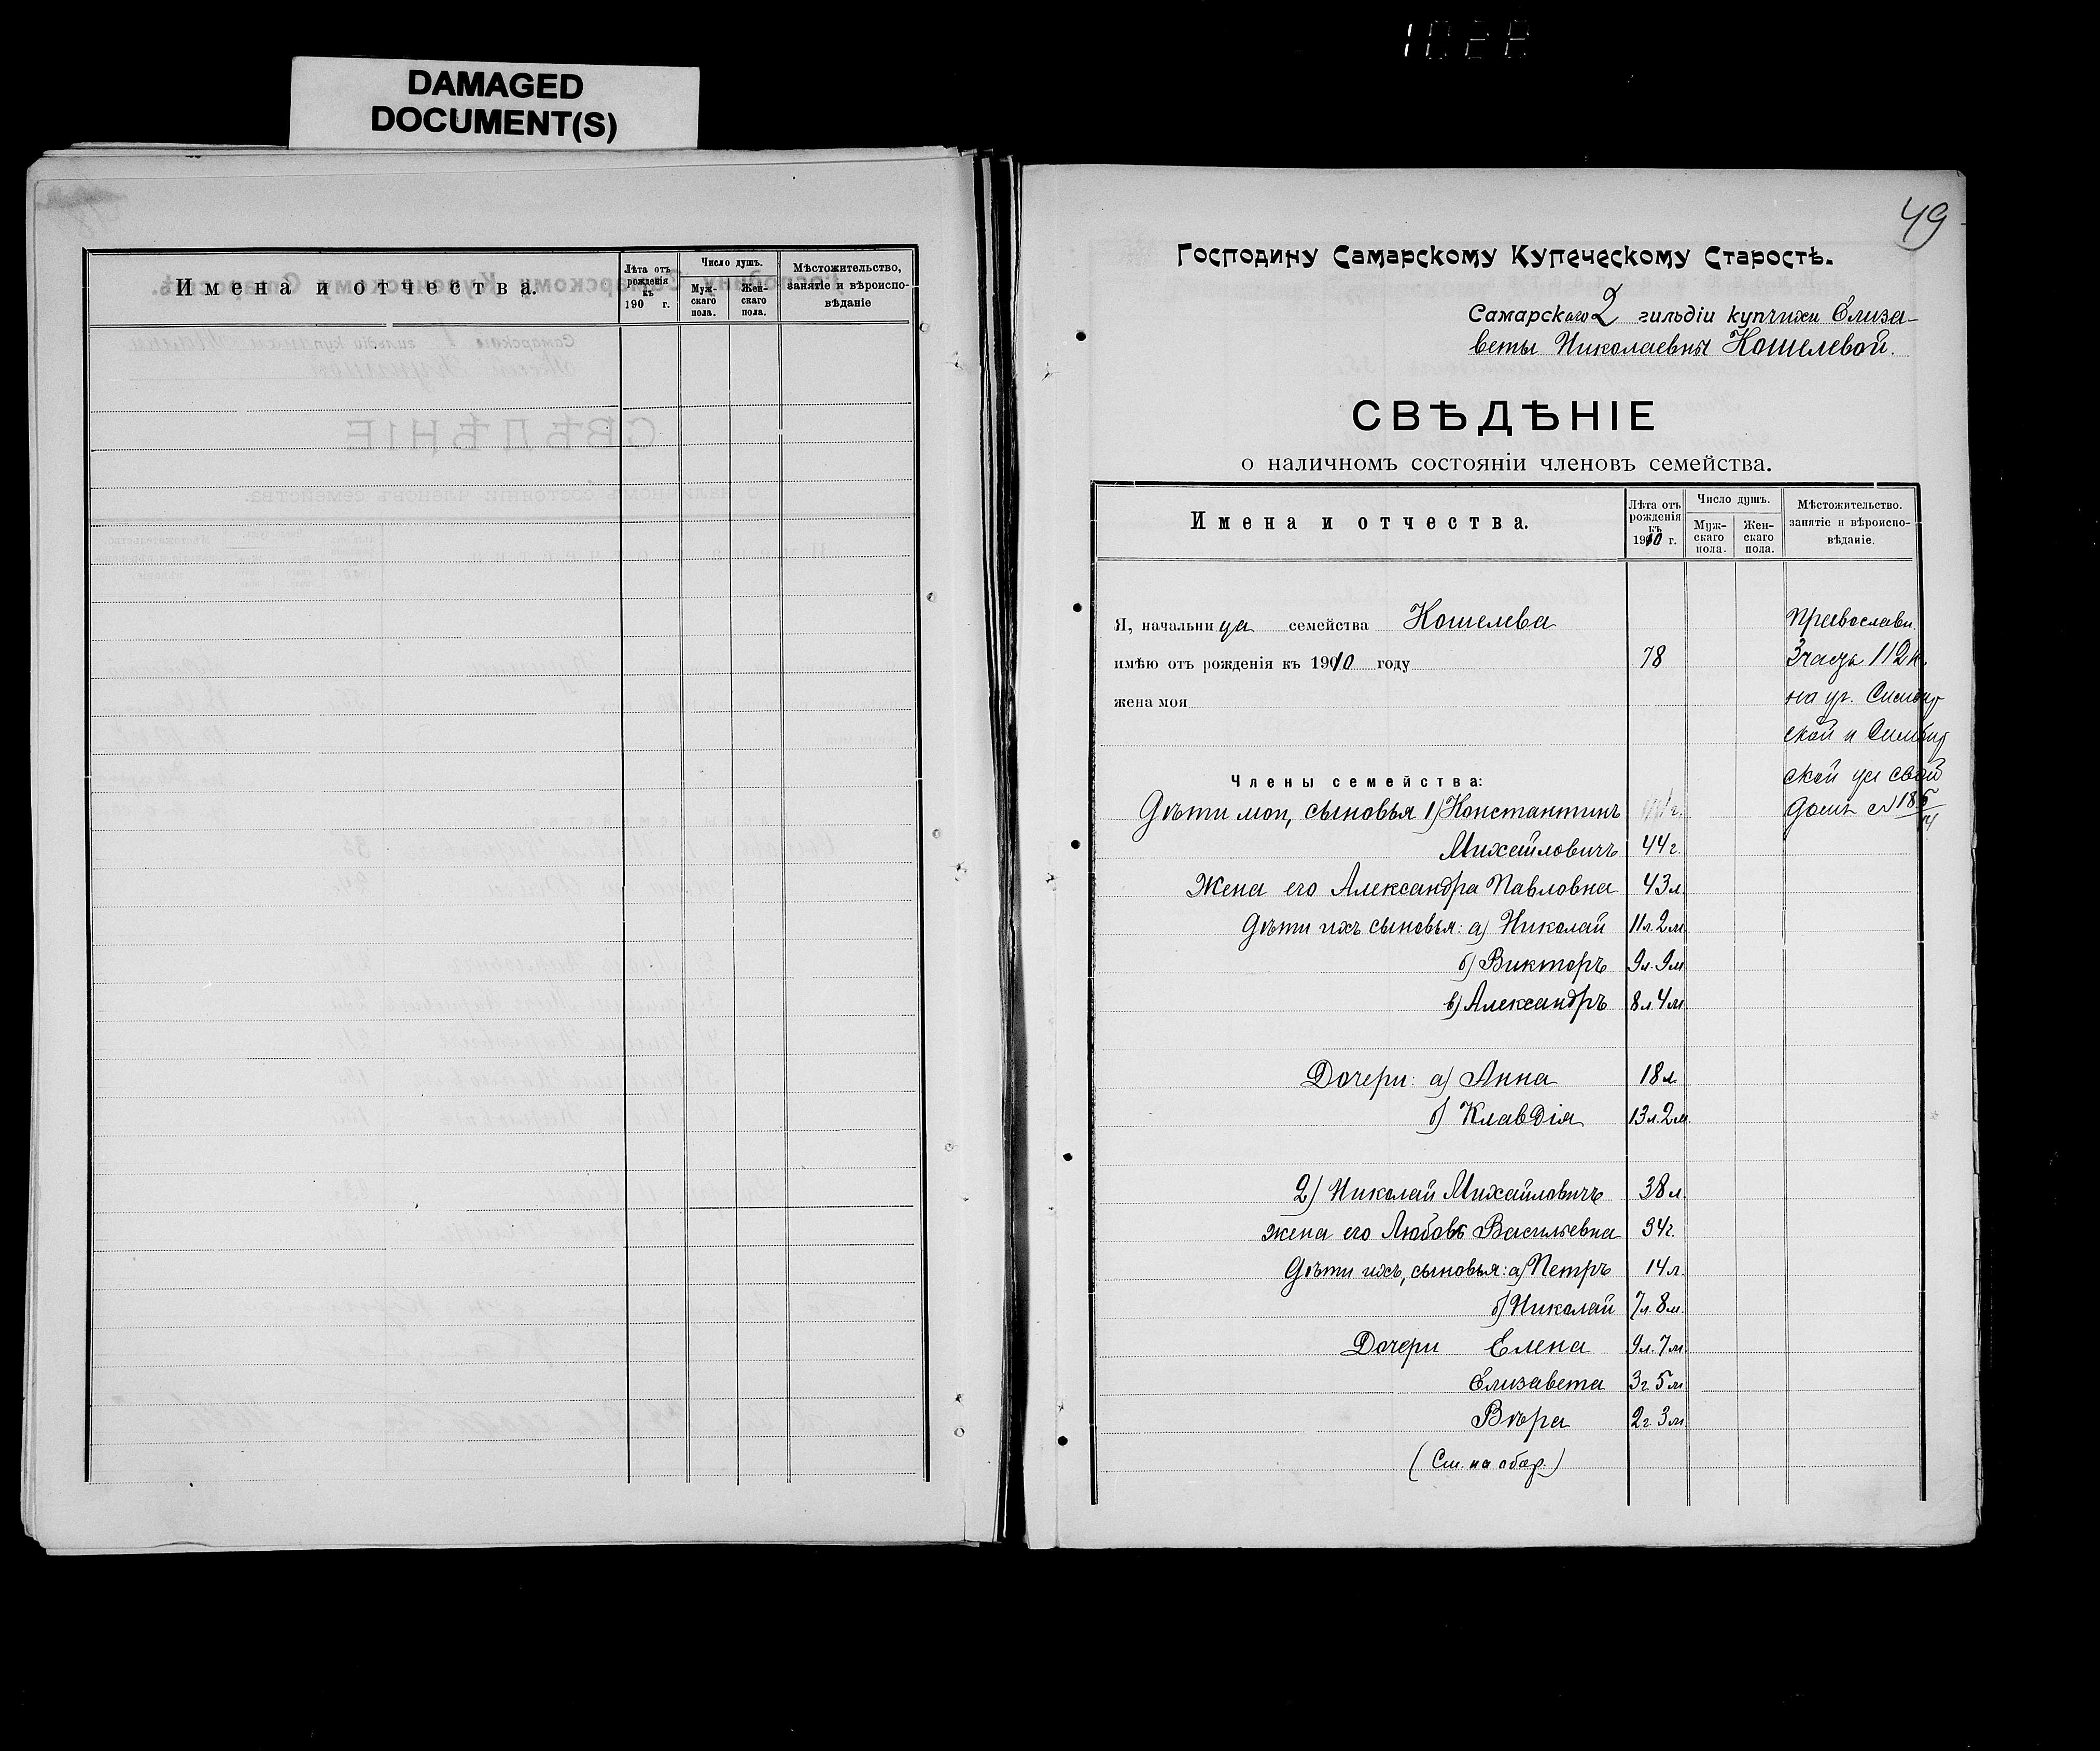 1028
DAMAGED
DOCUMENT(S)
Имена и отчества.
Лѣта отъ
рожденія
къ
190 г.
Число душъ.
Муж-
скаго
пола.
Жен-
скаго
пола.
Мѣстожительство,
занятіе и вѣроиспо-
вѣданіе
49
Господину Самарскому Купеческому Старостѣ.
Самарскаго 2 гильдіи купчихи Елиза-
веты Николаевны Кошелевой.
СВѢДѢНІЕ
о наличномъ состояніи членовъ семейства.
Имена и отчества.
Лѣта отъ
рожденія
къ
1910 г.
Число душъ.
Муж-
скаго
пола.
Жен-
скаго
пола.
Мѣстожительство.
занятіе и вѣроиспо-
вѣданіе.
Я, начальница семейства Кошелева Православн.
имѣю отъ рожденія къ 1910 году 78 3 часть 112 к.
жена моя на уг.
ской и
Члены семейства: ской ул свой
Дѣти мои, сыновья 1) Константинъ домъ №
Михайловичъ 44 г.
Жена его Александра Павловна 43 л.
Дѣти ихъ сыновья: а) Николай 11 л. 2 м.
б) Викторъ 9 л. 9 м.
в) Александръ 8 л. 4 м.
Дочери: а) Анна 18 л.
б) Клавдія 13 л. 2 м.
2) Николай Михайловичъ 38 л.
жена его Любовь Васильевна 34 г.
Дѣти ихъ, сыновья: а) Петръ 14 л.
б) Николай 7 л. 8 м.
Дочери Елена 9 л. 7 м.
Елизавета 3 г. 5 м.
Вѣра 2 г. 3 м.
(См. на обор.)